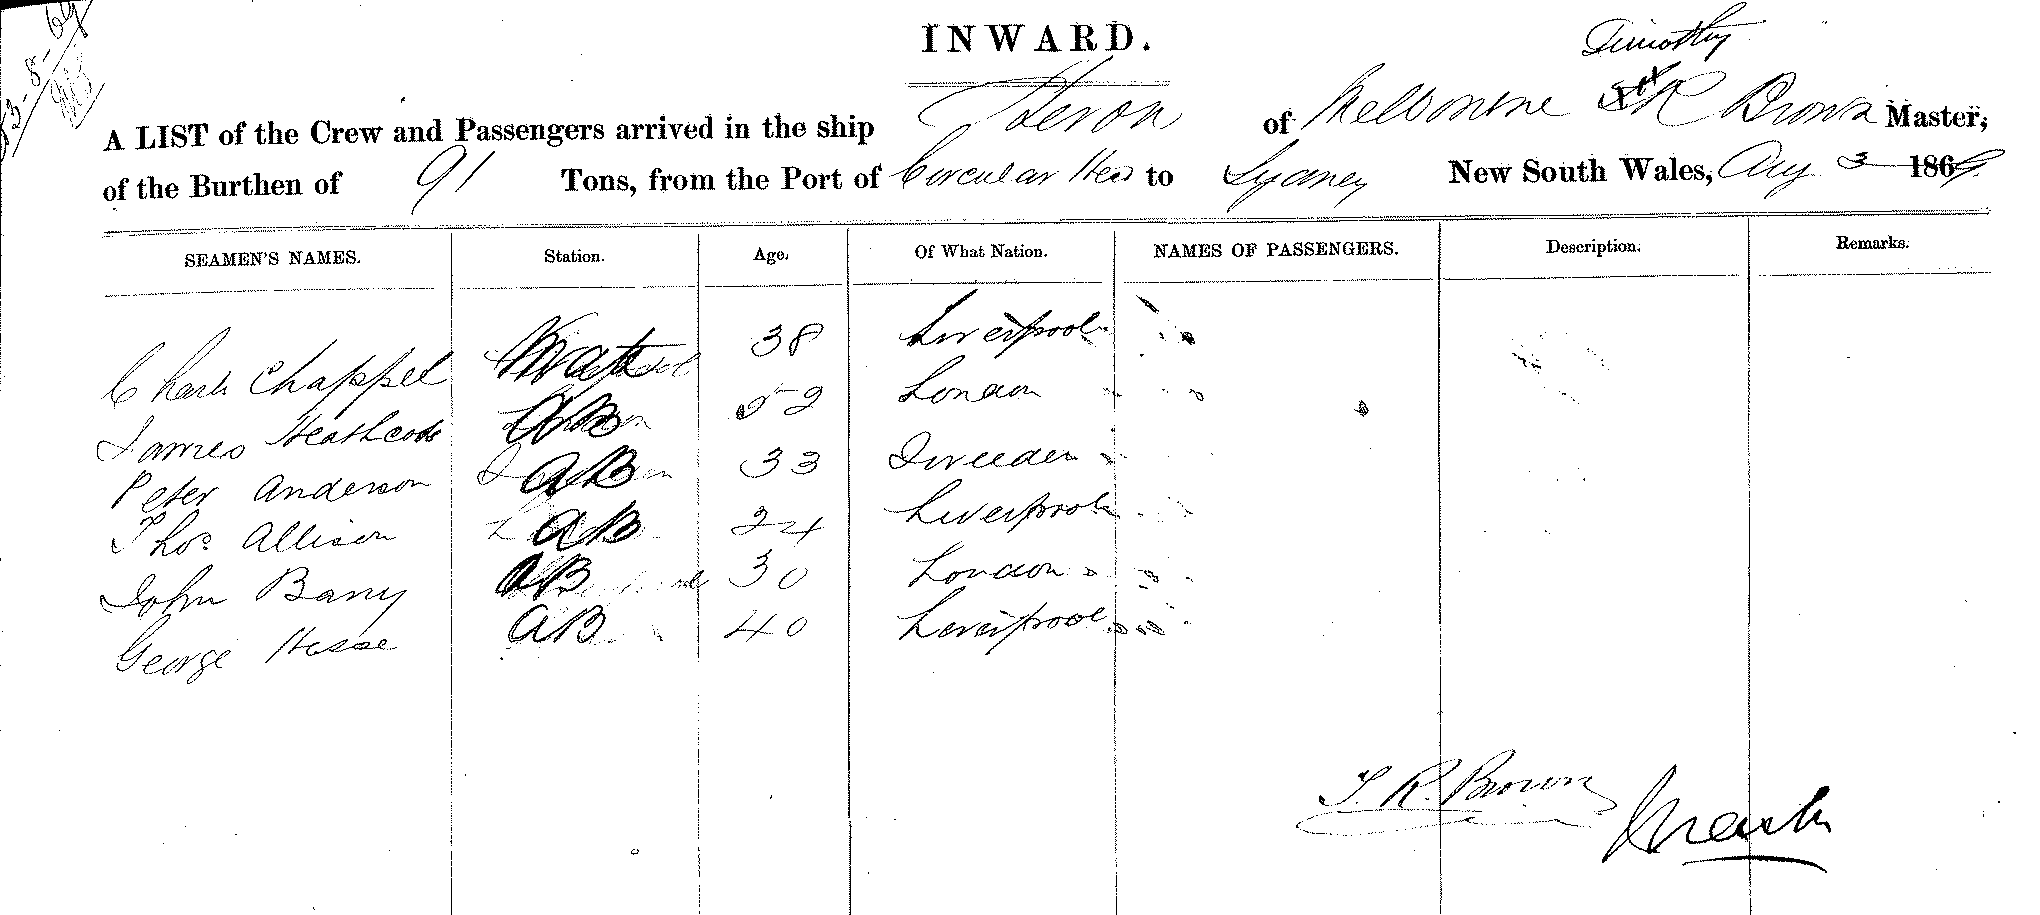 3-8-69
INWARD.
Timothy
A LIST of the Crew and Passengers arrived in the ship Heron of Melbourne R Brown Master,
of the Burthen of 91 Tons, from the Port of Circular Head to Sydney New South Wales, Aug 3 1869
SEAMEN'S NAMES. Station. Age. Of What Nation. NAMES OF PASSENGERS. Description. Remarks.
Charls Chappel Mate 38 Liverpool
James Heathcote AB 52 London
Peter Anderson AB 33 Sweeden
Thos Allison AB 24 Liverpool
John Barry AB 30 London
George Hesse AB 40 Liverpool
T. R. Brown